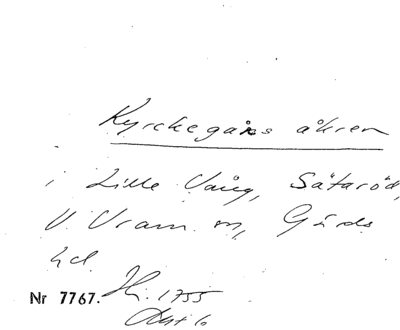 Kyrckegåns åkren
i Lille Vång, Sätaröd,
V. Vram sn, Gärds
hd.
Nr 7767. Hi. 1755
Akt 6